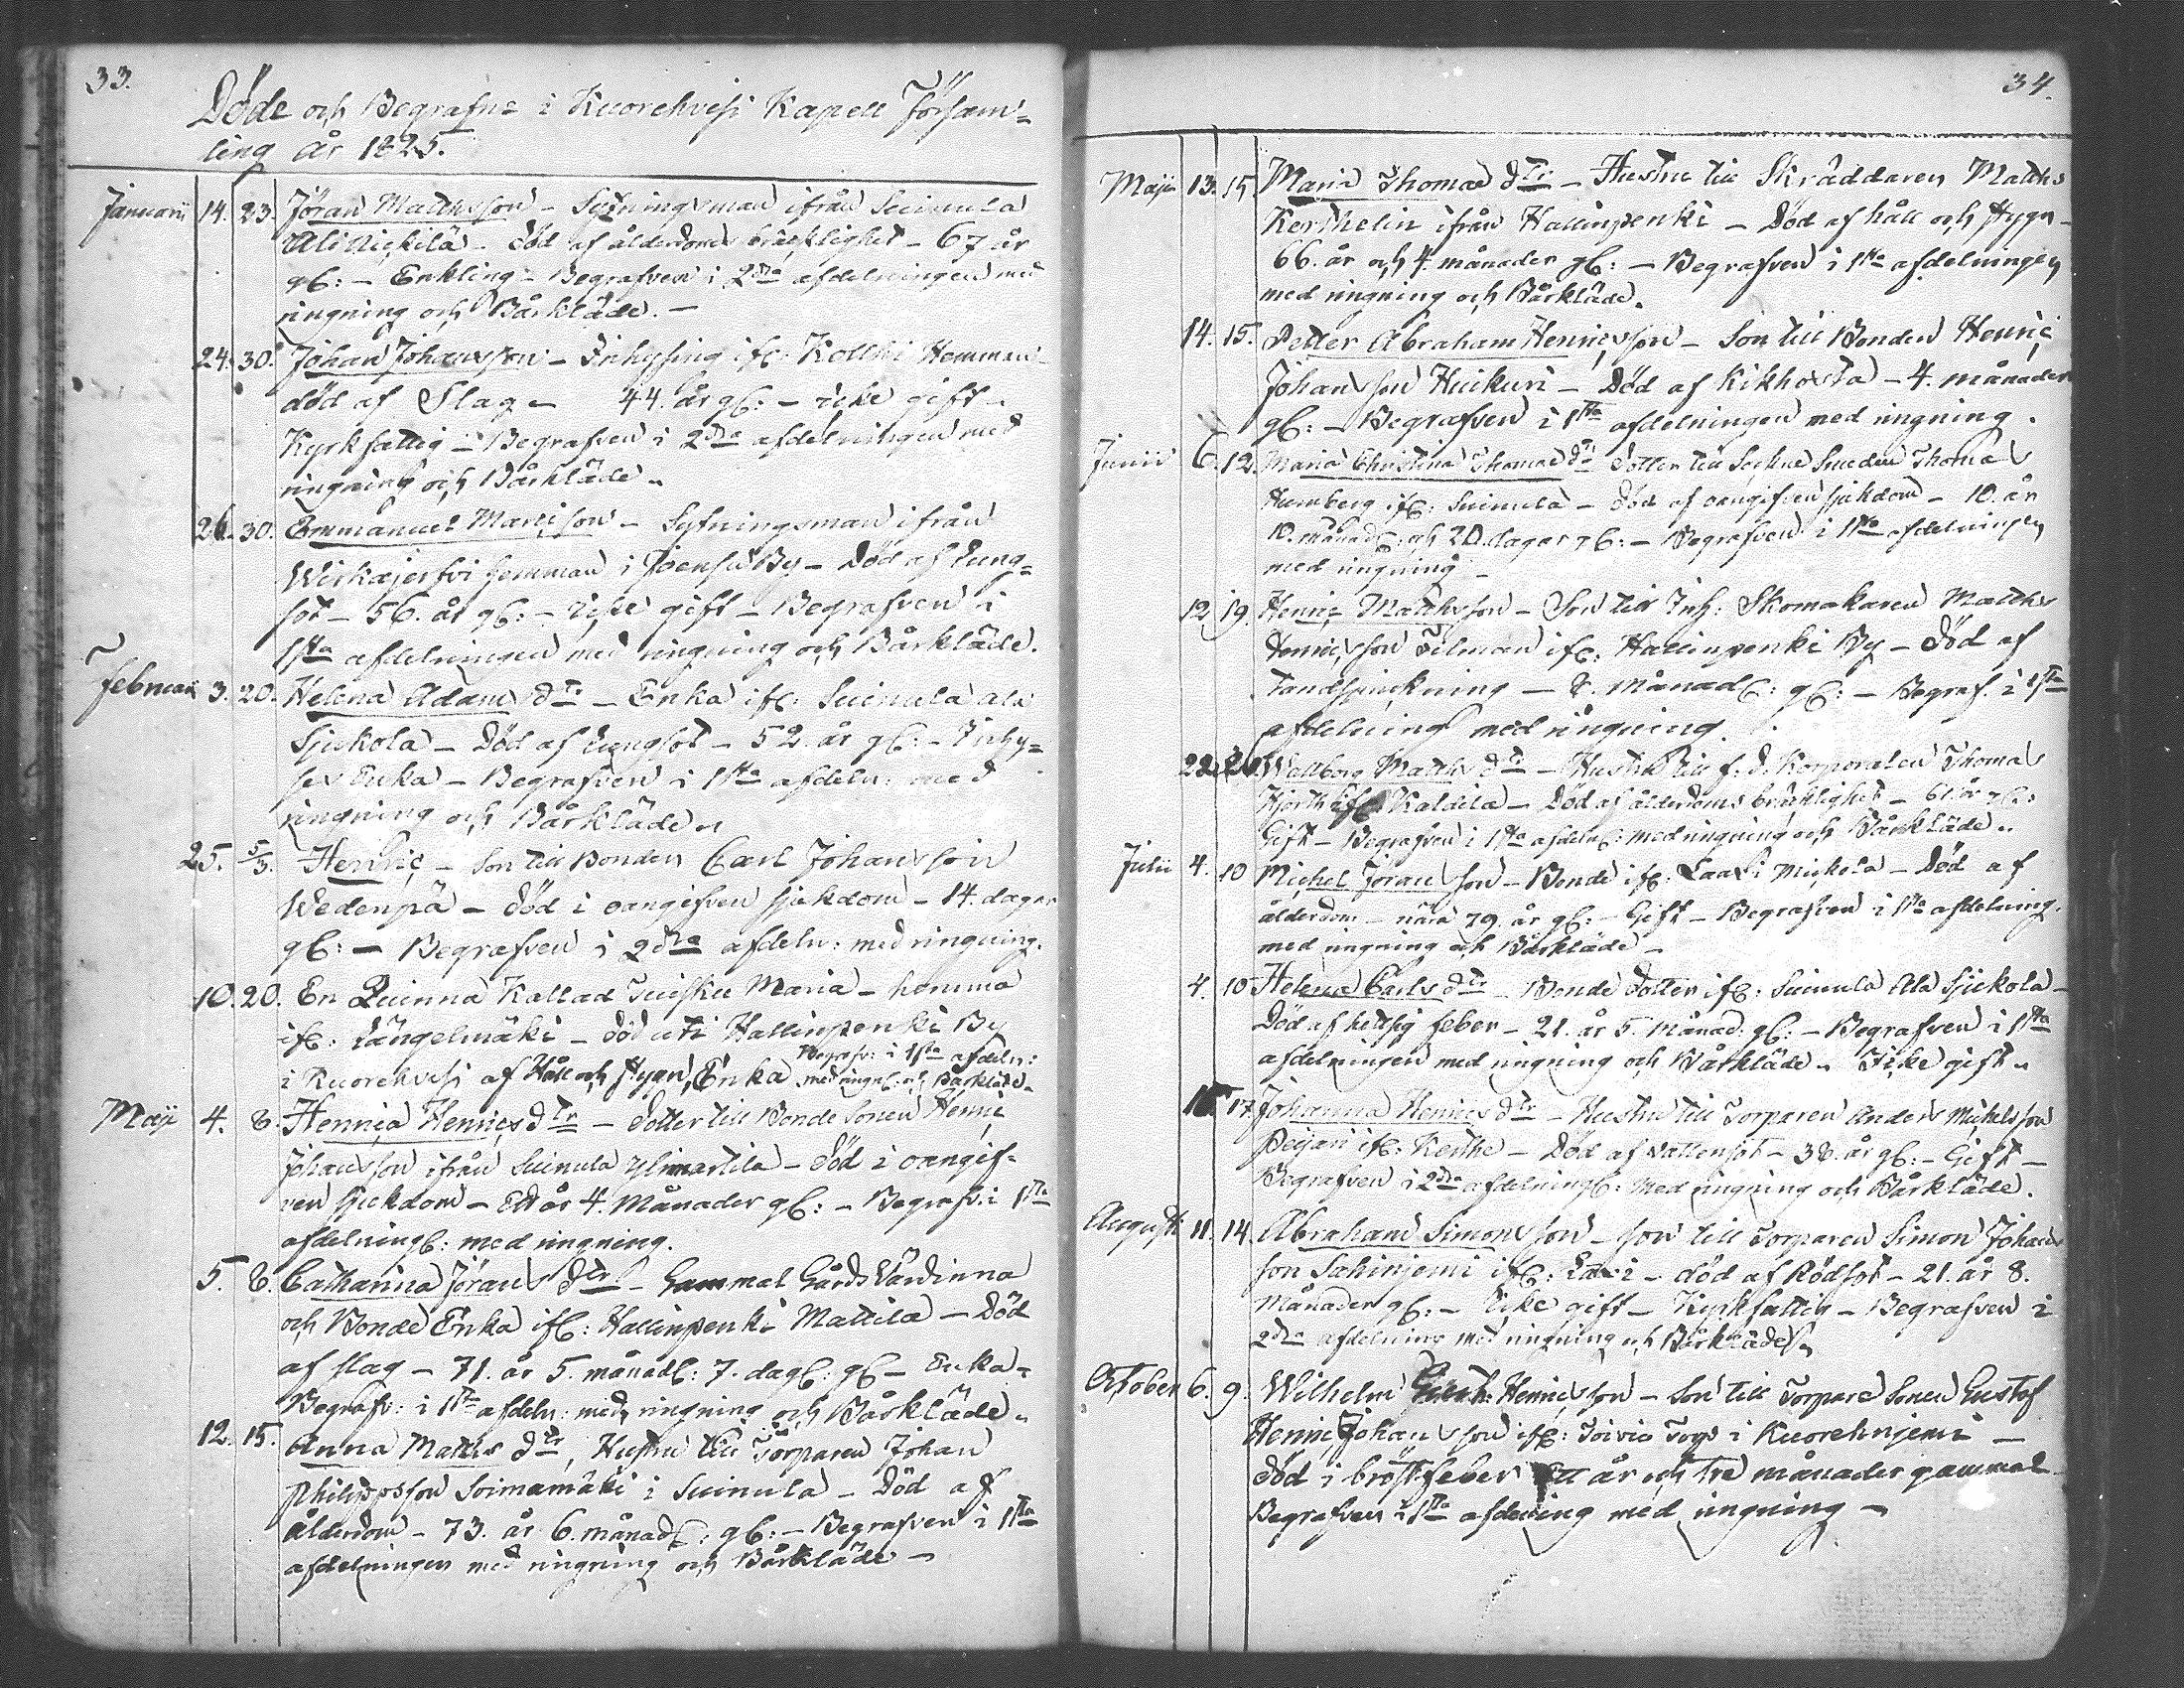 33.
Döde och Begrafne i Kuorehvesi Kapell Försam-
ling År 1825.
Januarii 14. 23. Jöran Matthsson - Sytningsman ifrån Suinula
Alinickilä - död af ålderdoms bräcklighet - 67 år
gl: - Enkling - Begrafven i 2dra afdelningen med
ringning och Bårkläde. -
24. 30. Johan Johansson - Inhysing ifr: Kollhi Hemman -
död af Slag - 44. år gl: - icke gift -
Kyrkfattig - Begrafven i 2dra afdelningen med
ringning och Bårkläde -
26. 30. Emmanuel Matsson - Sytningsman ifrån
Wirkajerfvi hemman i Joensu By - Död af Lung-
sot - 56. år gl: - icke gift - Begrafven i
1sta afdelningen med ringning och Bårkläde.
Februarii 3. 20. Helena Adams dtr - Enka ifr: Suinula Ala
Sjukola - Död af Lungsot - 52. år gl: - Inhy-
ses Enka - Begrafven i 1sta afdeln: med
ringning och Bårkläde -
25. 5/3. Henric - Son till Bonden Carl Johansson
Wedenpä - död i oangifven sjukdom - 14. dagar
gl: - Begrafven i 2dra afdeln: med ringning.
10. 20. En Quinna Kallad Tuisku Maria - hemma
ifr: Längelmäki - död uti Hallinpenki By
i Kuorehvesi af Håll och Stygn, Enka Begrafv: i 1sta afdeln:
med ringn: och Bårkläde -
Maji 4. 8. Henrica Henrics dtr - Dotter till Bonde Sonen Henric
Johansson ifrån Suinula Ylimartila - död i oangif-
ven sjukdom - Ett år 4. Månader gl: - Begrafv: i 1sta
afdelning: med ringning.
5. 8. Catharina Jörans dtr - Gammal Gårds Värdinna
och Bonde Enka ifr: Hallinpenki Mattila - Död
af slag - 71. år 5. månad: 7. dag: gl - Enka -
Begrafv: i 1sta afdeln: med ringning och Bårkläde -
12. 15. Anna Matths dtr, Hustru till Torparen Johan
Philippsson Soimamäki i Suinula - Död af
ålderdom - 73. år 6. månad: gl: - Begrafven i 1sta
afdelningen med ringning och Bårkläde -
34.
Maji 13. 15. Maria Thomae dtr - Hustru till Skräddaren Matths
Kerthelin ifrån Hallinpenki - Död af håll och stygn -
66. år och 4. månader gl: - Begrafven i 1sta afdelningen
med ringning och Bårkläde.
14. 15. Petter Abraham Henricsson - Son till Bonden Henric
Johansson Huikuri - Död af Kikhosta - 4. månader
gl: - Begrafven i 1sta afdelningen med ringning.
Junii 6. 12. Maria Christina Thomae dtr Dotter till Sockne Smeden Thomas
Humberg ifr: Suinula - död af oangifven sjukdom - 10. år
10. månad: och 20. dagar gl: - Begrafven i 1sta afdelningen
med ringning -
12. 19. Henric Matthsson - Son till Inh: Skomakaren Matths
Henricsson Filman ifr: Hallinpenki By - Död af
Tandsprickning - 8. Månad: gl: - Begraf. i 1sta
afdelning med ringning.
22. 26. Wallborg Matths dtr - Hustru till f. d. Korporalen Thomas
Hjorth ifr: Kaldila - Död af ålderdoms bräcklighet - 61. år gl:
Gift - Begrafven i 1sta afdeln: med ringning och Bårkläde -
Julii 4. 10 Michel Jöransson - Bonde ifr: Laasi Mickola - Död af
ålderdom - nära 79. år gl: - Gift - Begrafven i 1sta afdelning.
med ringning och Bårkläde -
4. 10 Helena Carls dtr - Bonde Dotter ifr: Suinula Ala Sjukola -
Död af hettsig feber - 21. år 5. månad: gl: - Begrafven i 1sta
afdelningen med ringning och Bårkläde - Icke gift -
17. Johanna Henrics dtr - Hustru till Torparen Anders Michelsson
Peijari ifr: Kerthe - Död af Vattensot - 38. år gl: - Gift -
Begrafven i 2dra afdelning: med ringning och Bårkläde.
Augusti 11. 14. Abraham Simonsson - son till Torparen Simon Johans
son Sahinjemi ifr: - död af Rödsot - 21. år 8.
Månader gl: - Icke gift - Kyrkfattig - Begrafven i
2dra afdelning med ringning och Bårkläde -
October 6. 9. Wilhelm Henricsson - Son till Torpare Sonen Gustaf
Henric Johansson ifr: Toivio Torp i Kuorehnjemi -
död i bröstfeber Ett år och tre månader gammal -
Begrafven i 1sta afdelning med ringning -